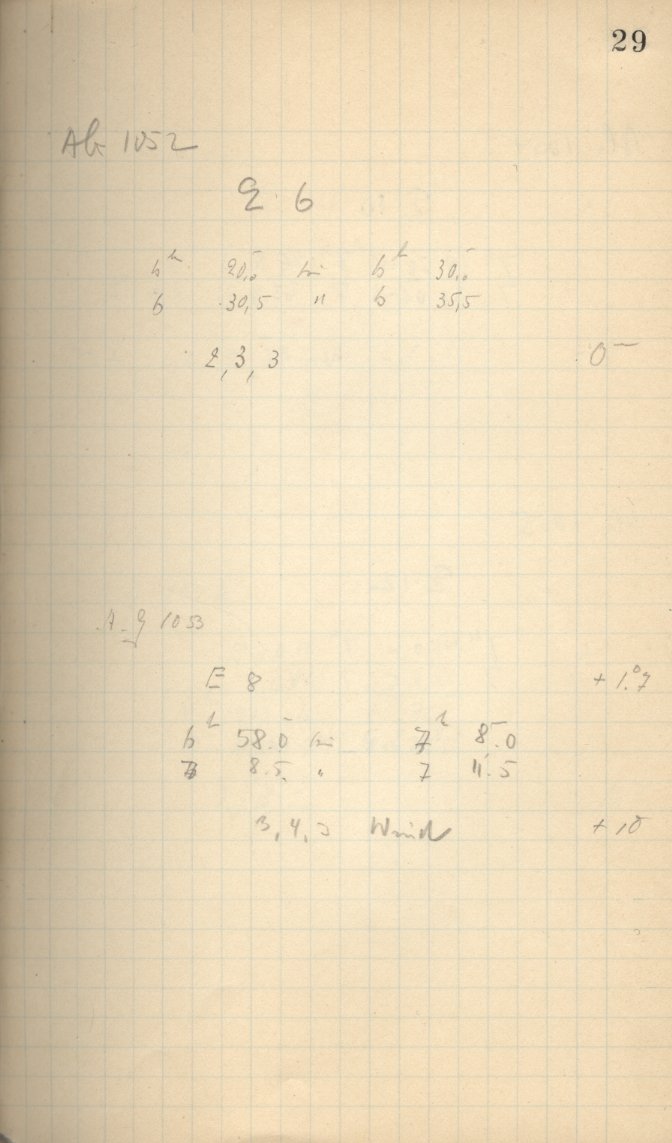 29
AG 1052
E 6
6h 20,0 bis 6h 30,0
6 30,5 " 6 35,5
2, 3, 3 0
A.G 1053
E 8 + 1.°7
6h 58.0 bis 7h 8.0
7 8.5 " 7 11.5
3, 4, 3 Wind + 10